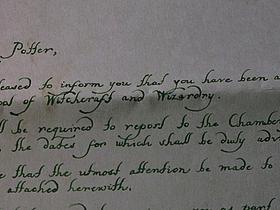 Potter,
eased to inform you that you have been a
ool of Witchcraft and Wizardry.
ll be required to report to the Chamber
, the dates for which shall be duly adv
e that the utmost attention be made to
attached herewith.